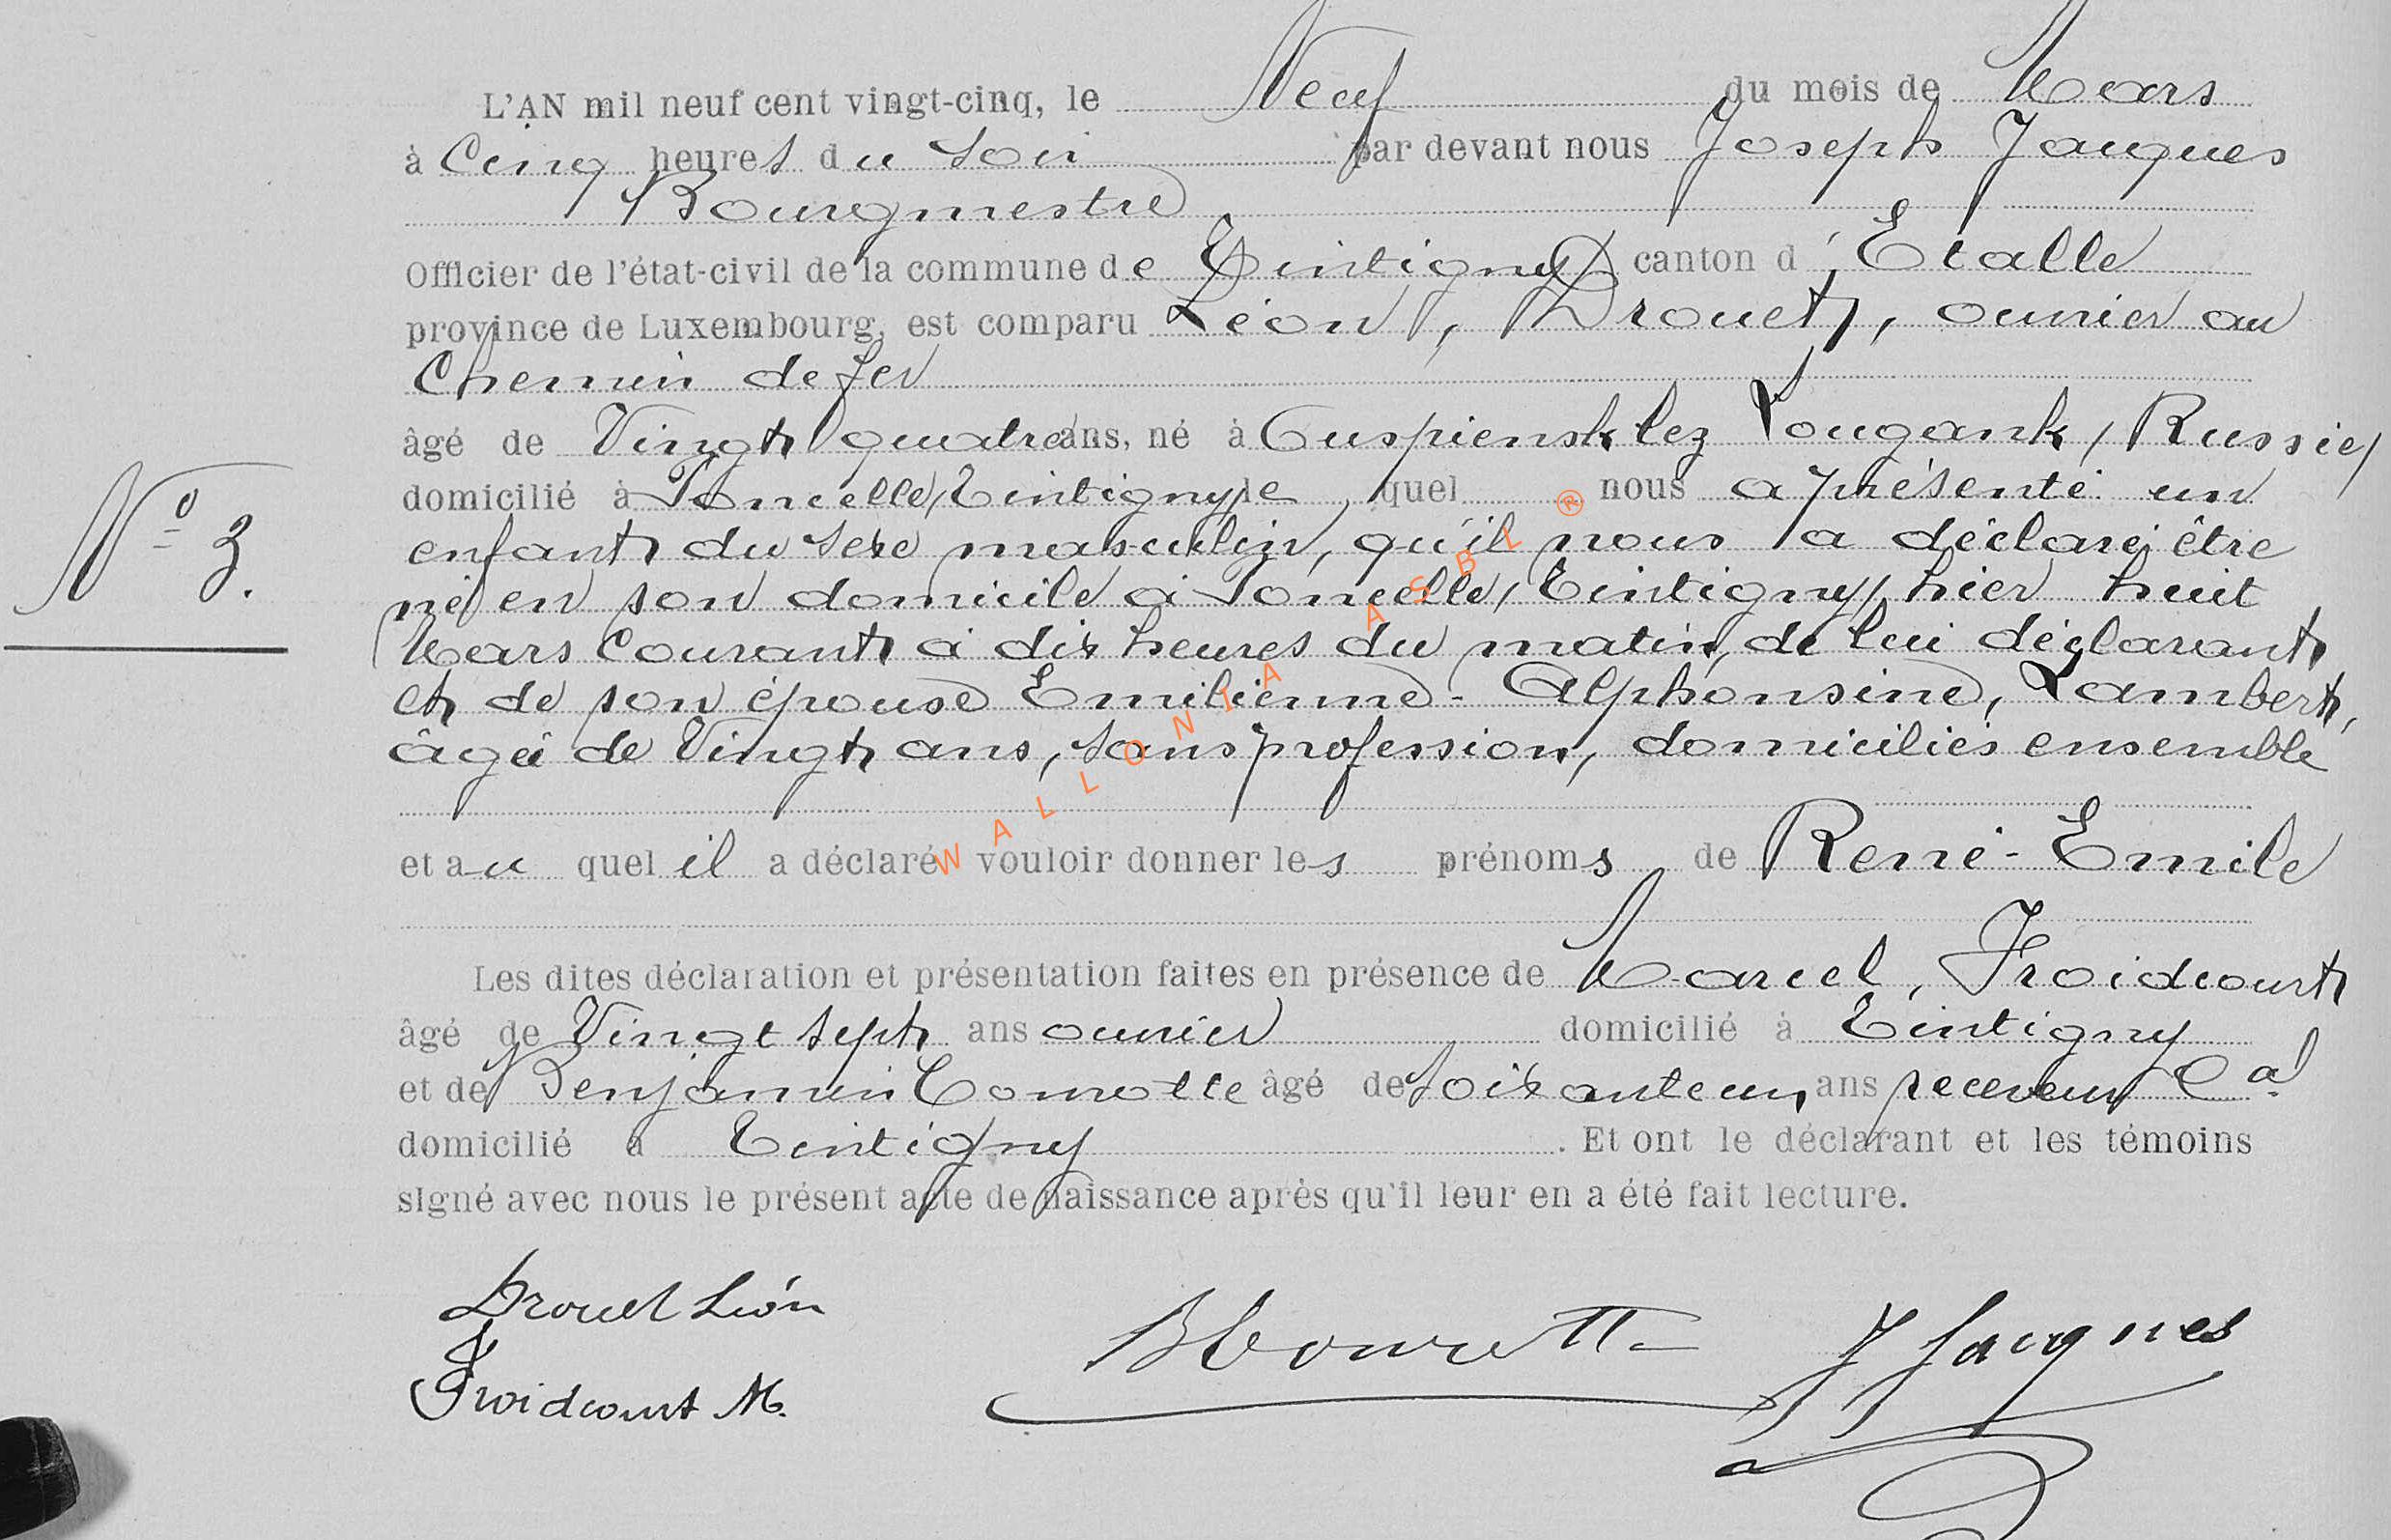 L'AN mil neuf cent vingt-cinq, le Neuf du mois de Mars
à Cinq heures du soir par devant nous Joseph Jacques
Bourgmestre
Officier de l'état-civil de la commune de Tintigny canton d'Etalle
province de Luxembourg, est comparu Léon, Drouet, ouvrier au
Chemin de fer
âgé de Vingt quatre ans, né à Ouspiensk lez Lougank, (Russie)
domicilié à Poncelle (Tintigny) le quel nous a présenté un
enfant du sexe masculin, qu'il nous a déclaré être
né en son domicile à Poncelle (Tintigny) hier huit
Mars Courant à dix heures du matin, de lui déclarant
et de son épouse Emilienne-Alphonsine, Lambert,
âgée de Vingt ans, sans profession, domiciliés ensemble
et au quel il a déclaré vouloir donner les prénoms de René-Emile
Les dites déclaration et présentation faites en présence de Marcel, Froidcourt
âgé de Vingt sept ans ouvrier domicilié à Tintigny
et de Benjamin Cornette âgé de Soixante un ans receveur Cal
domicilié à Tintigny. Et ont le déclarant et les témoins
signé avec nous le présent acte de naissance après qu'il leur en a été fait lecture.
N° 3.
Drouet Léon
Froidcourt M.
J Jacques
WALLONIA ASBL ®